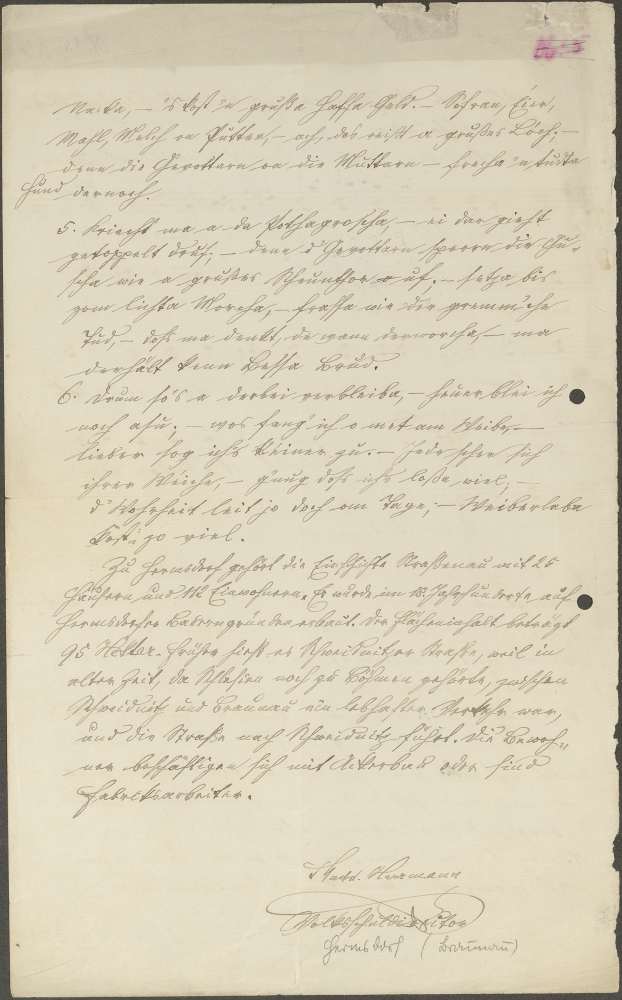 Nacka, – 's kost 'n gruße Haffa Geld. – Sofran, Eier,
Mahl, Milch on Putter, – och, dos reißt a grußes Loch; –
denn die Gevottarn on die Muttarn – frecha 'n tudta
Hund dernoch.
5. Kriecht ma a da Pothagroscha, – ei dar zieht
getoppelt druf; – denn d' Gevottarn sperrn die Gu-
scha wie a grußes Scheunthor uf, – setza bis
zom lichta Morcha, – frassa wie der gremm'che
Tud, – doß ma denkt, de wann derworcha, – ma
derhält kenn Bessa Brud.
6. Drum só's a derbei verbleiba, – heuer blei ich
noch asu; – wos fang' ich o met am Weibe, –
lieber sog ich's keiner zu. – Jede scher sich
ihrer Wéiche, – g'nug doß ich's losse viel; –
d' Wohrheit leit jo doch om Tage; – Weiberlaba
kost zo viel.
Zu Hermsdorf gehört die Einschichte Straßenau mit 25
Häusern und 112 Einwohnern. Er wurde im 18. Jahrhunderte auf
Hermsdorfer Bauerngründen erbaut. Der Flächeninhalt beträgt
95 Hektar. Früher hieß es Schweidnitzer Straße, weil in
alter Zeit, da Schlesien noch zu Böhmen gehörte, zwischen
Schweidnitz und Braunau ein lebhafter Verkehr war,
und die Straße nach Schweidnitz führt. Die Bewoh-
ner beschäftigen sich mit Ackerbau oder sind
Fabriksarbeiter.
Herzmann
Volksschuldirektor
Hermsdorf (Braunau)